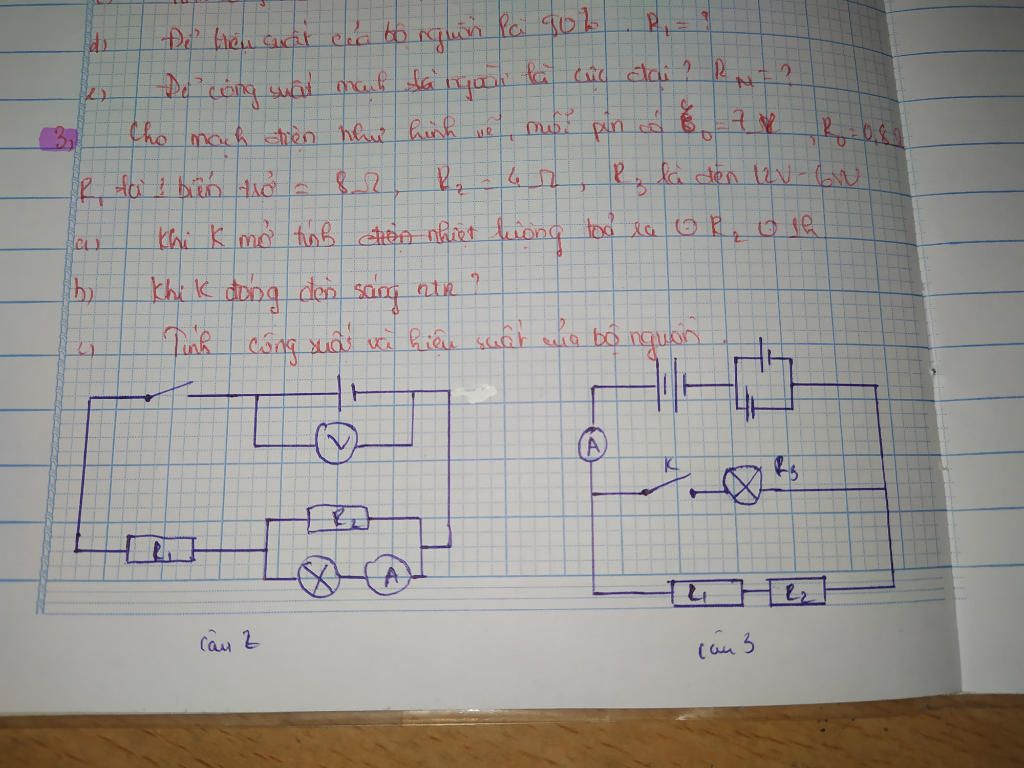 d) Để hiệu suất của bộ nguồn là 90%. R₁ = ?
e) Để công suất mạch ngoài là cực đại? R_N = ?
3, Cho mạch điện như hình vẽ, mỗi pin có ξ₀ = 7V, R₀ = 0,8Ω
R₁ là 1 biến trở = 8Ω, R₂ = 4Ω, R₃ là đèn 12V-6W
a) Khi K mở tính nhiệt lượng toả ra ở R₂ 1h
b) Khi K đóng đèn sáng ntn?
c) Tính công suất và hiệu suất của bộ nguồn.
V
R₂
R₁
X A
câu 2
A
K R₃
R₁ R₂
câu 3